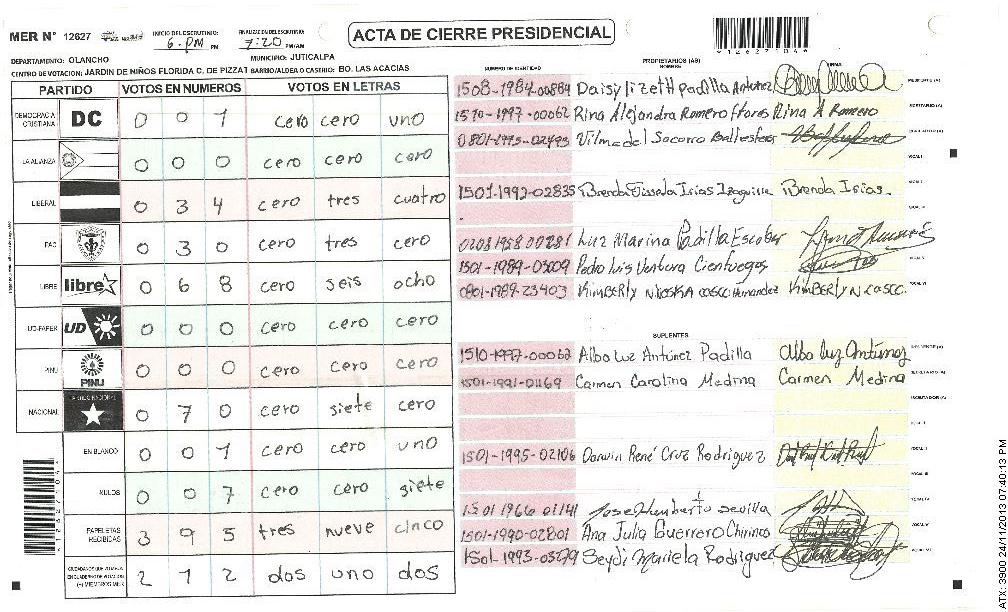 MER N° 12627
INICIO DEL ESCRUTINIO: 6:PM PM
FINALIZACION DEL ESCRUTINIO: 7:20 PM/AM
ACTA DE CIERRE PRESIDENCIAL
DEPARTAMENTO: OLANCHO MUNICIPIO: JUTICALPA
CENTRO DE VOTACION: JARDIN DE NIÑOS FLORIDA C. DE PIZZAT BARRIO/ALDEA O CASERIO: BO. LAS ACACIAS
PARTIDO VOTOS EN NUMEROS VOTOS EN LETRAS
DEMOCRACIA CRISTIANA DC 0 0 1 cero cero uno
LA ALIANZA 0 0 0 cero cero cero
LIBERAL 0 3 4 cero tres cuatro
PAC 0 3 0 cero tres cero
LIBRE libre 0 6 8 cero seis ocho
UD-FAPER UD 0 0 0 cero cero cero
PINU PINU 0 0 0 cero cero cero
NACIONAL 0 7 0 cero siete cero
EN BLANCO 0 0 1 cero cero uno
NULOS 0 0 7 cero cero siete
PAPELETAS RECIBIDAS 3 9 5 tres nueve cinco
2 1 2 dos uno dos
NUMERO DE IDENTIDAD PROPIETARIOS (AS) NOMBRE FIRMA
1508-1984-00884 Daisy lizeth padilla Antunez
1510-1997-00062 Rina Alejandra Romero flores Rina A Romero
0801-1995-02493 Vilma del Socorro Ballesteros
1501-1992-02835 Brenda Isirias Izaguirre Brenda Irias.
0208 1958 00281 Luz Marina Padilla Escober
1501-1989-03009 Pedro Luis Ventura Cienfuegos
0801-1989-23403 KimBERLY
SUPLENTES
1510-1997-00062 Alba Luz Antúnez Padilla Alba luz Antúnez
1501-1991-01169 Carmen Carolina Medina Carmen Medina
1501-1995-02106 Darwin René Cruz Rodriguez
1501 1966 01141 Jose Humberto sevilla
1501-1990-02801 Ana Julia Guerrero Chirinos
1501-1993-03279 Seydi Mariela Rodriguez
ATX: 3900 24/11/2013 07:40:13 PM